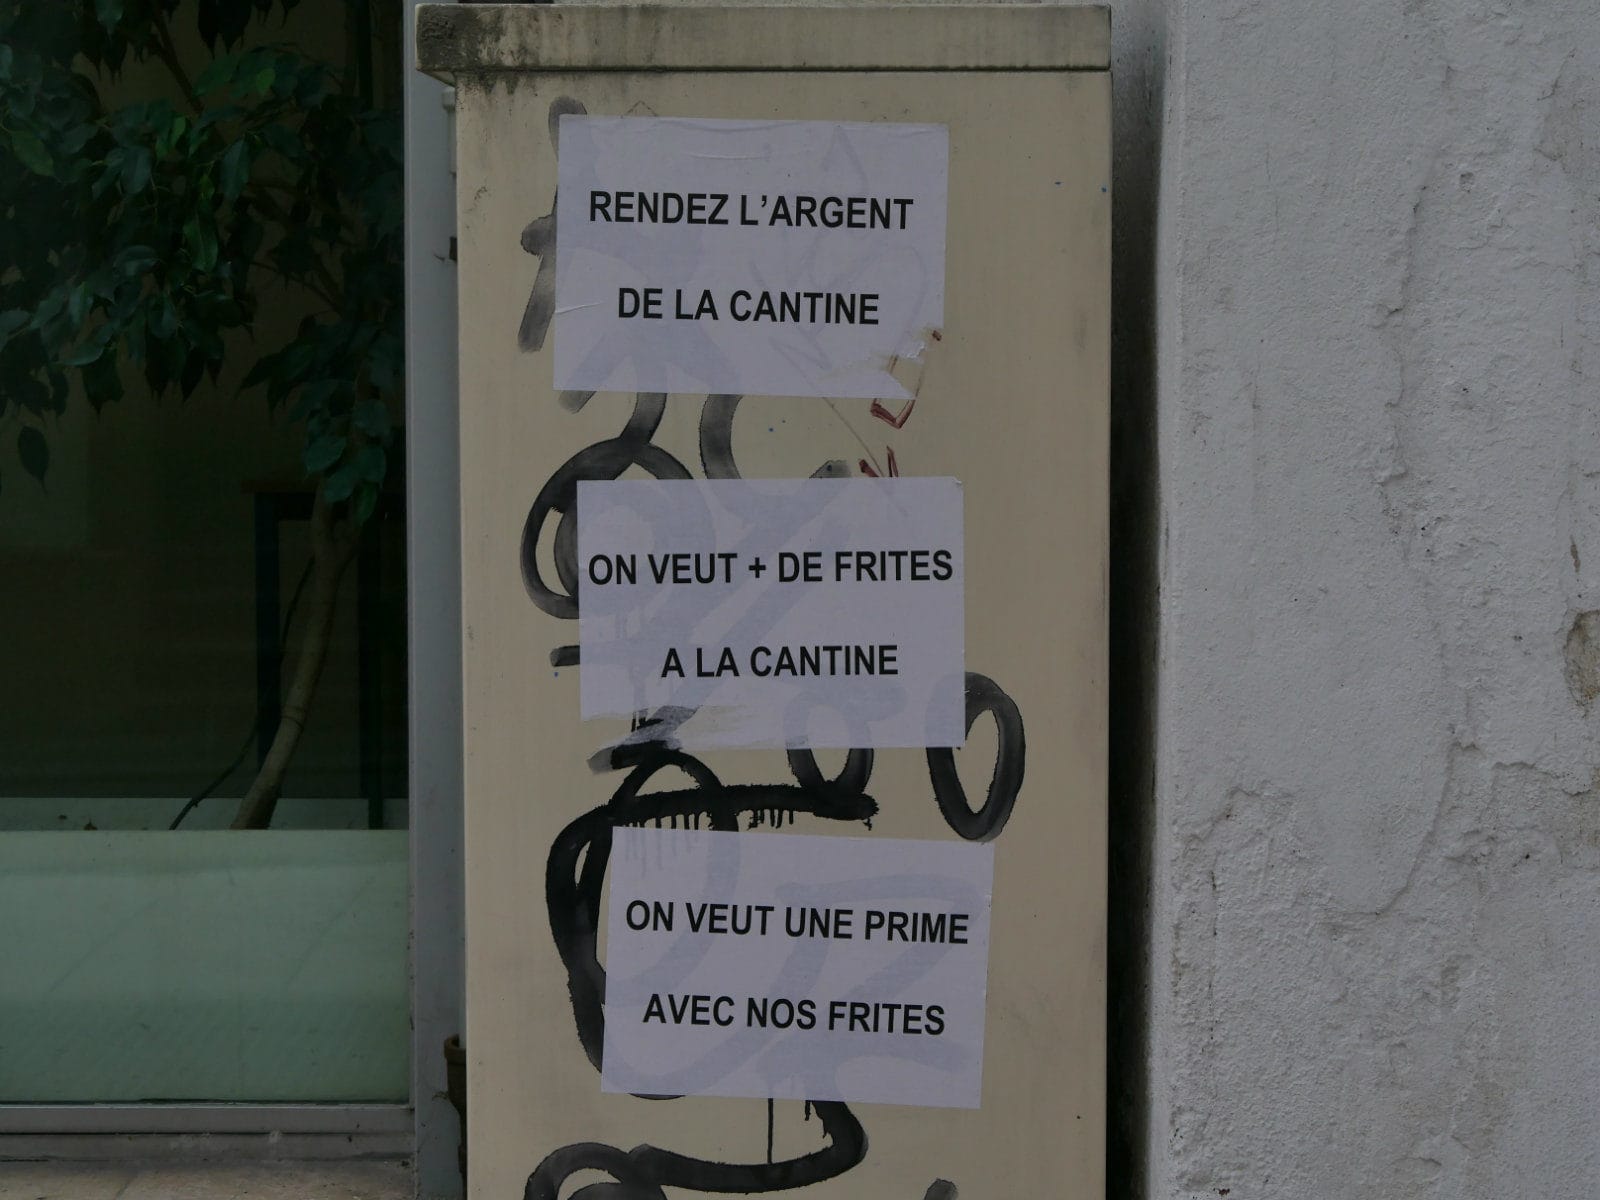 RENDEZ L’ARGENT
DE LA CANTINE
ON VEUT + DE FRITES
A LA CANTINE
ON VEUT UNE PRIME
AVEC NOS FRITES